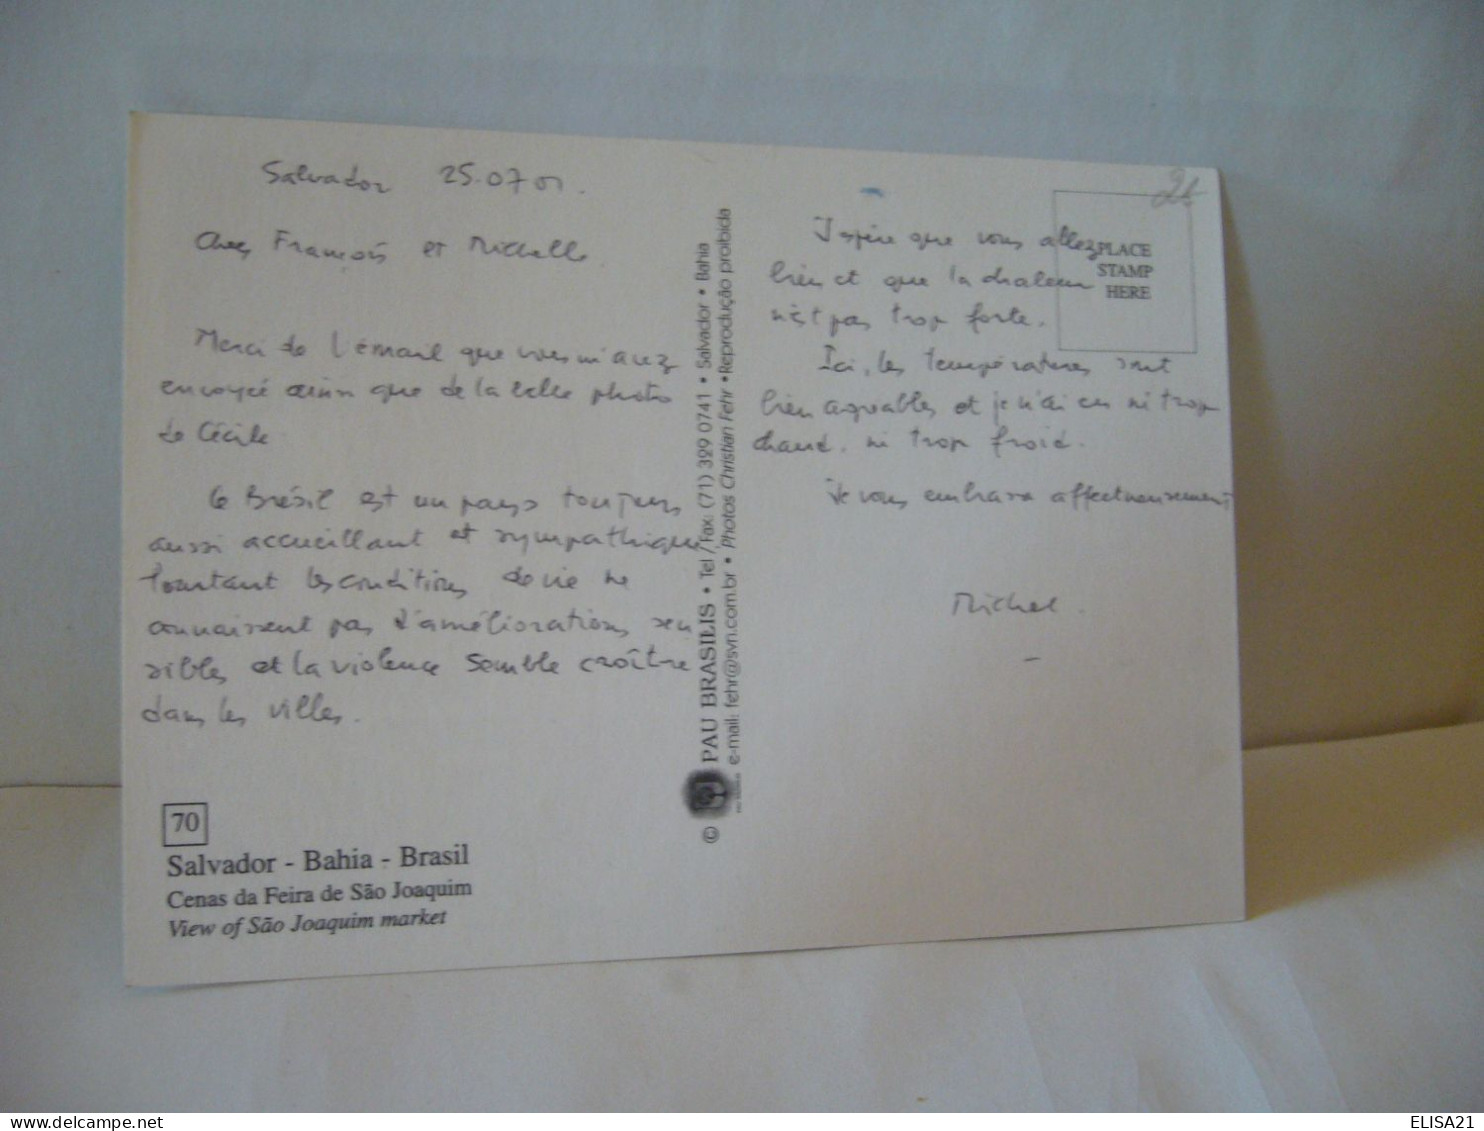 Salvador 25.07 01.
Chers François et Michelle.
Merci de l'émail que vous m'avez
envoyé ainsi que de la belle photo
de Cécile
Le Brésil est un pays toujours
aussi accueillant et sympathique
Pourtant les conditions de vie ne
connaissent pas d'améliorations sen
sibles et la violence semble croître
dans les villes.
J'espère que vous allez
bien et que la chaleur
n'est pas trop forte.
Ici, les températures sont
bien agréables et je n'ai eu ni trop
chaud, ni trop froid.
Je vous embrasse affectueusement
Michel.
PLACE
STAMP
HERE
© PAU BRASILIS • Tel / Fax: (71) 329 0741 • Salvador • Bahia
e-mail: fehr@svn.com.br • Photos Christian Fehr • Reprodução proibida
70
Salvador - Bahia - Brasil
Cenas da Feira de São Joaquim
View of São Joaquim market
delcampe.net
ELISA21